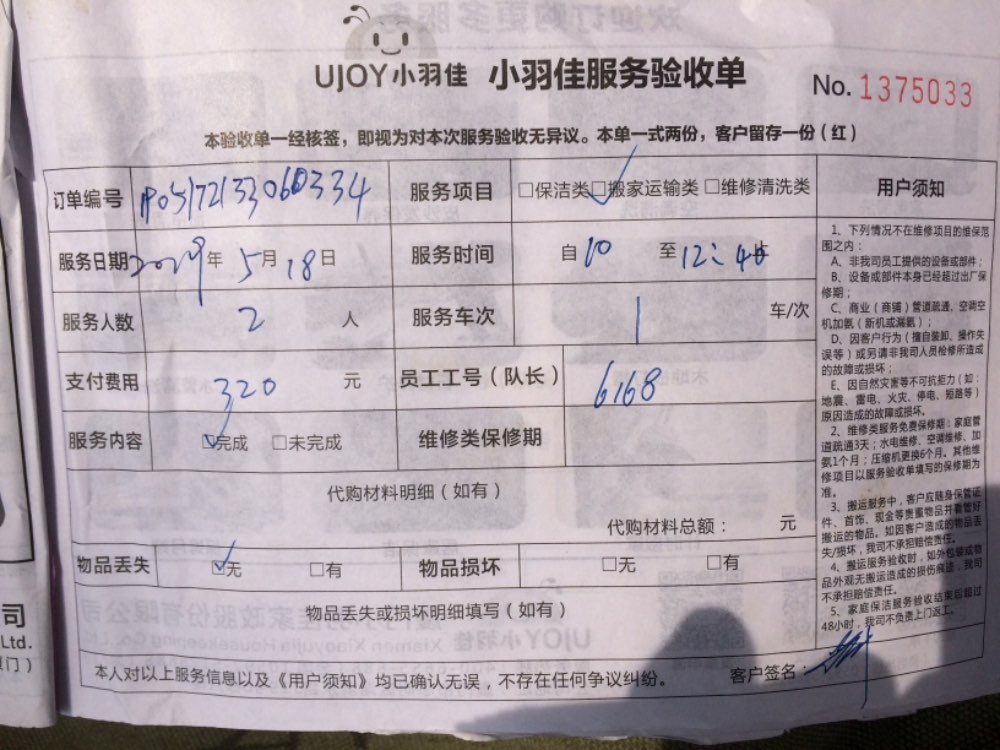 UJOY小羽佳 小羽佳服务验收单
No. 1375033
本验收单一经核签，即视为对本次服务验收无异议。本单一式两份，客户留存一份（红）
订单编号 服务项目 □保洁类 ☑搬家运输类 □维修清洗类
服务日期 2019年5月18日 服务时间 自10 至12:
服务人数 2 人 服务车次 1 车/次
支付费用 320 元 员工工号（队长） 6168
服务内容 ☑完成 □未完成 维修类保修期
代购材料明细（如有）
代购材料总额： 元
物品丢失 ☑无 □有 物品损坏 □无 □有
物品丢失或损坏明细填写（如有）
本人对以上服务信息以及《用户须知》均已确认无误，不存在任何争议纠纷。 客户签名：
用户须知
1、下列情况不在维修项目的维保范
围之内：
A、非我司员工提供的设备或部件；
B、设备或部件本身已经超过出厂保
修期；
C、商业（商铺）管道疏通、空调空
机加氨（新机或漏氨）；
D、因客户行为（擅自装卸、操作失
误等）或另请非我司人员检修所造成
的故障或损坏；
E、因自然灾害等不可抗拒力（如：
地震、雷电、火灾、停电、短路等）
原因造成的故障或损坏。
2、维修类服务免费保修期：家庭管
道疏通3天；水电维修、空调维修、加
氨1个月；压缩机更换6个月。其他维
修项目以服务验收单填写的保修期为
准。
3、搬运服务中，客户应随身保管证
件、首饰、现金等贵重物品并看管好
搬运的物品。如因客户造成的物品丢
失/损坏，我司不承担赔偿责任。
4、搬运服务验收时，如外包装或物
品外观无搬运造成的损伤痕迹，我司
不承担赔偿责任。
5、家庭保洁服务验收结束后超过
48小时，我司不负责上门返工。
司
Ltd.
门）